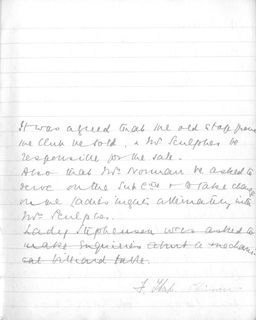 It was agreed that the old stage from
the Club be sold, & Mr Sculpher be
responsible for the sale.
Also that Mrs Norman be asked to
serve on the Sub Ctte & to take charge
on the ladies nights alternately with
Mrs Sculpher.
Lady Stephenson was asked to
make enquiries about a mechani-
cal billiard table.